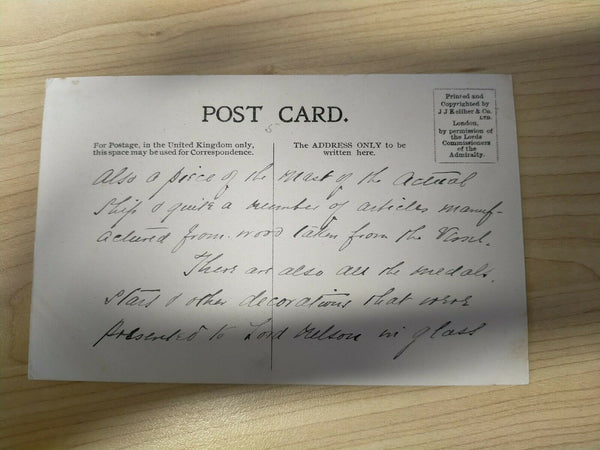 POST CARD.
5
For Postage, in the United Kingdom only,
this space may be used for Correspondence.
The ADDRESS ONLY to be
written here.
Printed and
Copyrighted by
J J Keliher & Co.
LTD.
London,
by permission of
the Lords
Commissioners
of the
Admiralty.
also a piece of the mast of the actual
Ship & quite a number of articles manuf-
actured from wood taken from the Vessel.
There are also all the medals,
Stars & other decorations that were
presented to Lord Nelson in glass